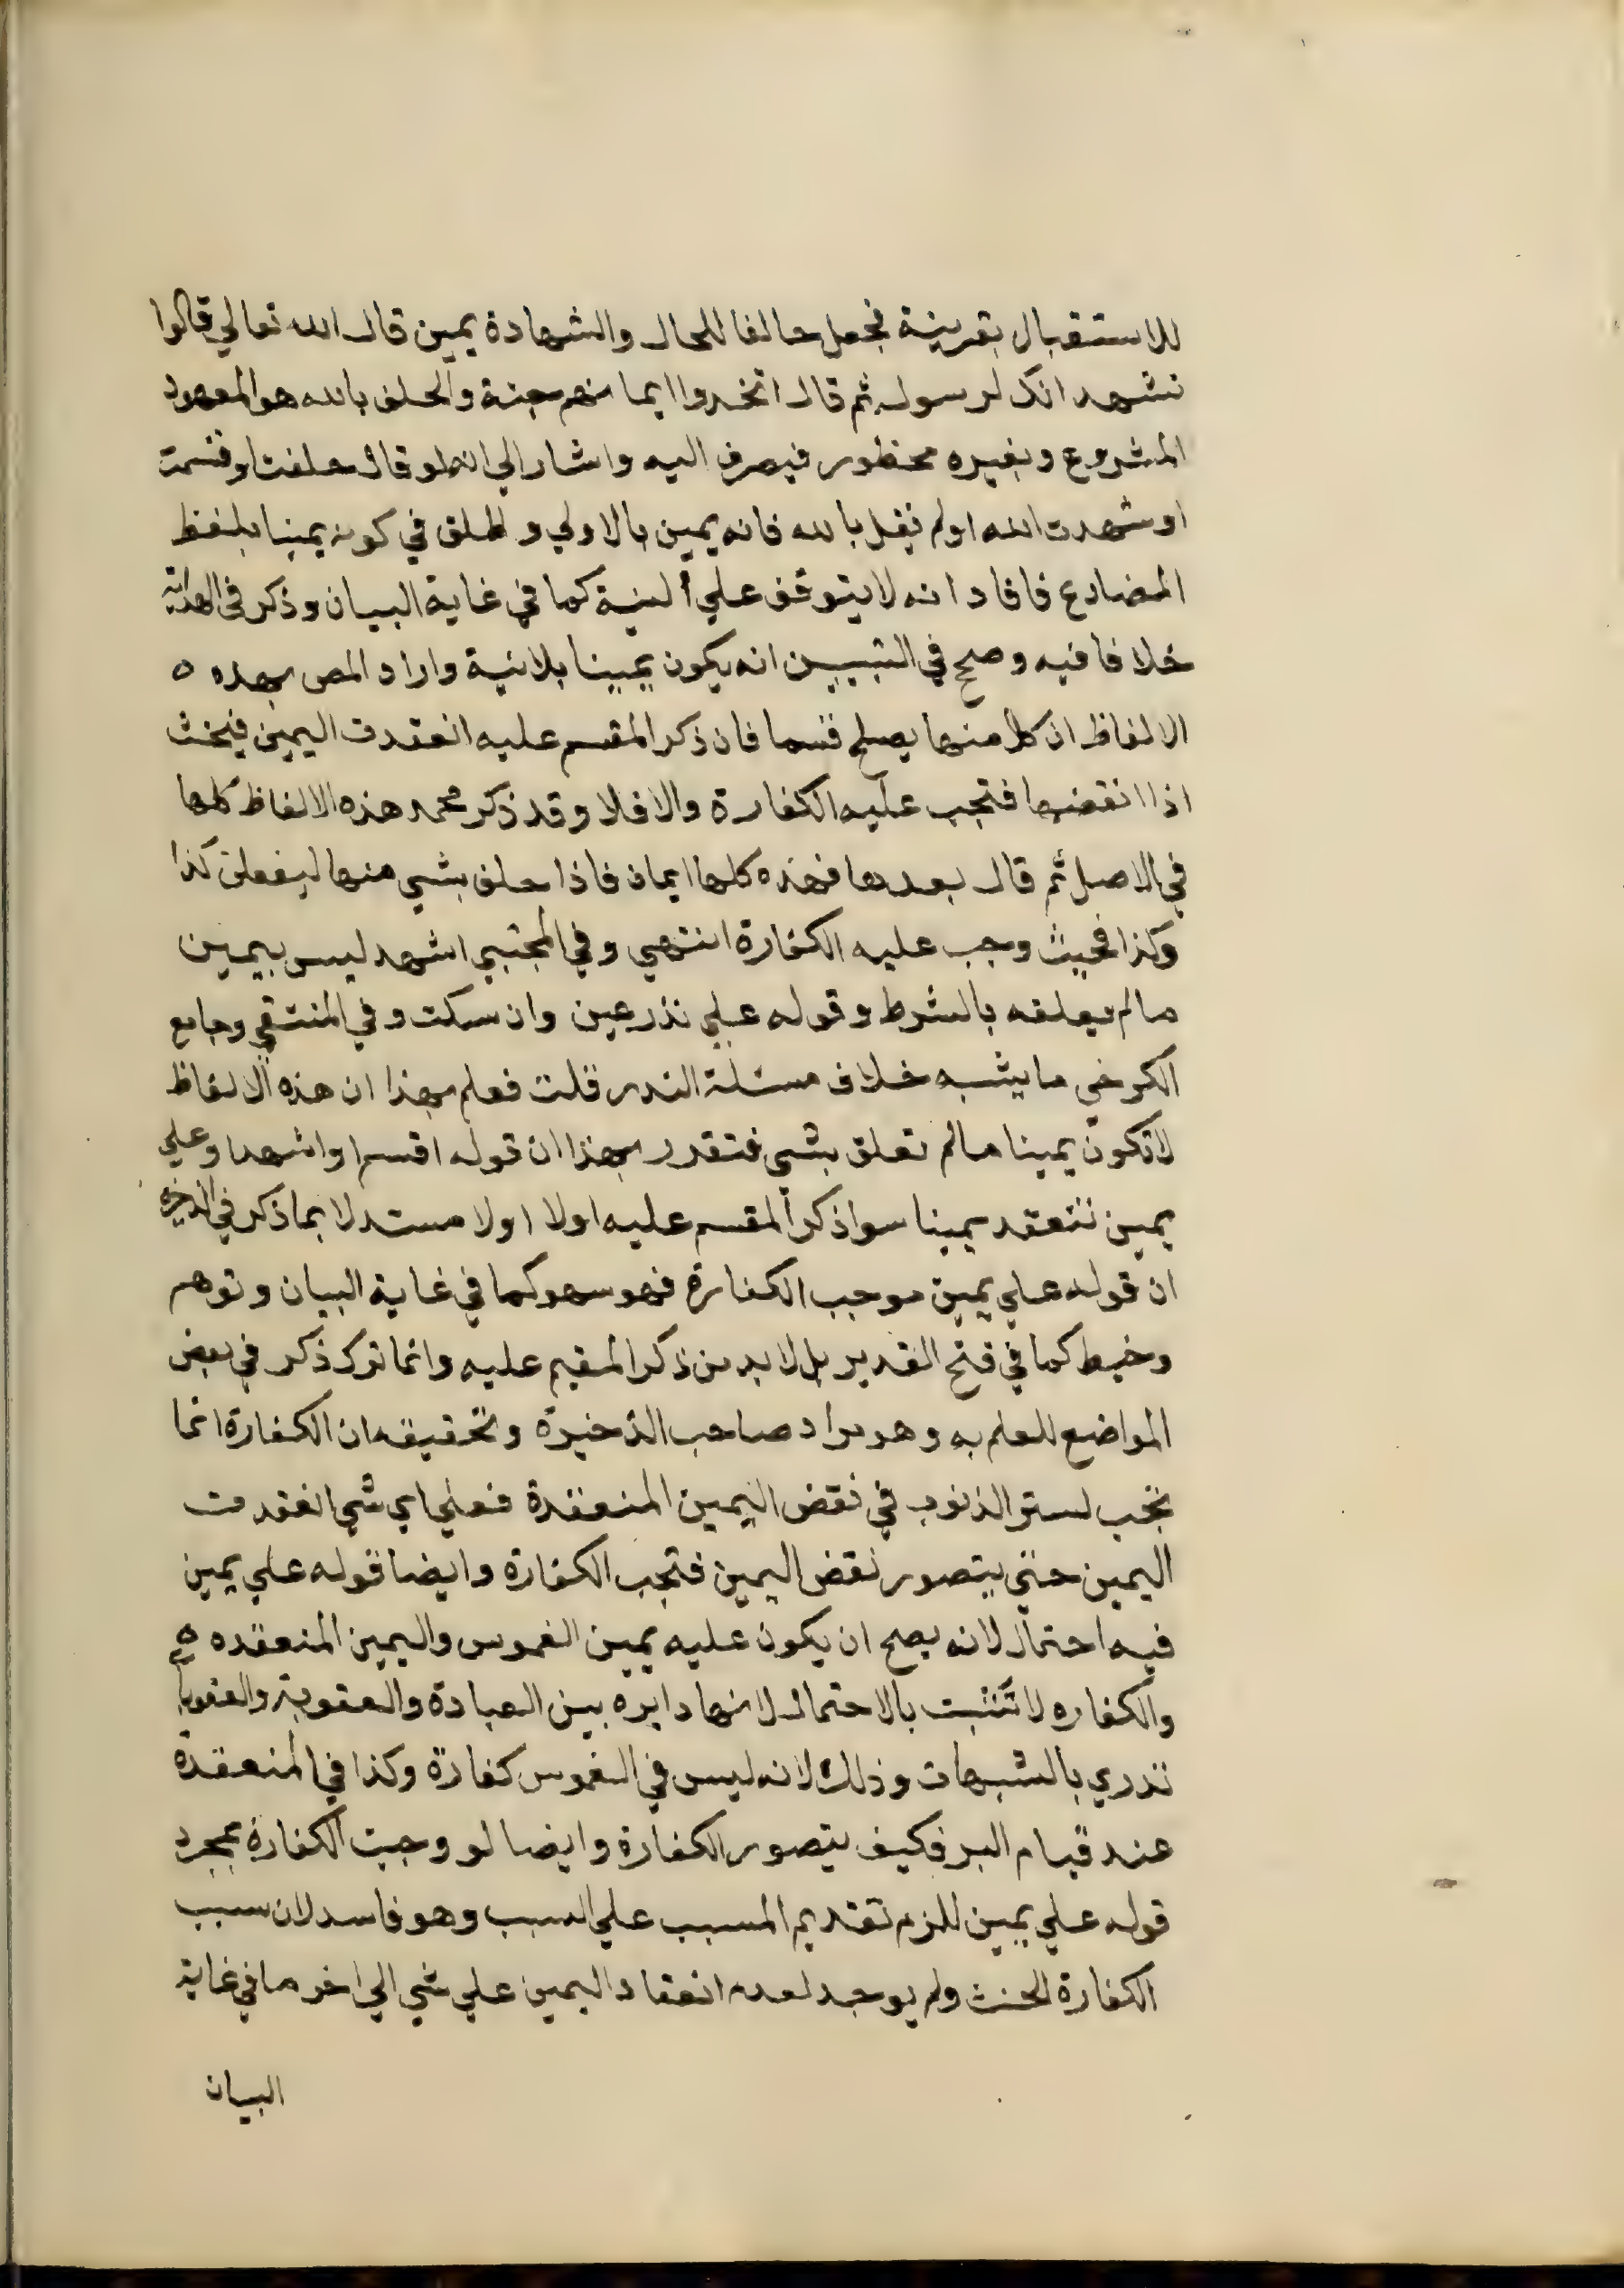 للاستقبال بقرينة فجعل حالفا للحال والشهادة يمين قال الله تعالي قالوا
نشهد انك لرسول ثم قال اتخدوا ايمانهم جنة والحلف بالله هو المعهود
المشروع وبغيره محظور فيصرف اليه واشار الي انه لو قال حلفت او قسمت
او شهدت الله اولم يقل بالله فانه يمين بالاولي واطلق في كونه يمينا بلفظ
المضارع فافاد انه لايتوقف علي النية كما في غاية البيان وذكر في الهداية
خلافا فيه وصحح في التبيين انه يكون يمينا بلانية واراد المص بهده ه
الالفاظ ان كل منها يصلح قسما فان ذكر المقسم عليه انعقدت اليمين فيحنث
اذا انقضها فتجب عليه الكفارة والا فلا وقد ذكر محمد هذه الالفاظ كلها
في الاصل ثم قال بعدها فهذه كلها ايمان فاذا حلف بشي منها ليفعلن كذا
وكذا فحيث وجب عليه الكفارة انتهي وفي المجتبي اشهد ليس بيمين
مالم يعلقه بالشرط وقوله علي نذر عين وان سكت وفي المنتقي وجامع
الكرخي ما يشبه خلاف مسئلة الندر قلت فعلم بهذا ان هذه الالفاظ
لاتكون يمينا مالم تعلق بشي فتقدر بهذا ان قوله اقسم او اشهد او علي
يمين تنعقد يمينا سوا ذكر المقسم عليه اولا اولا مستدلا بما ذكر في الذخيره
ان قوله علي يمين موجب الكفارة فهو سهو كما في غاية البيان وتوهم
وخبط كما في فتح القدير بل لا بد من ذكر المقيم عليه وانما ترك ذكر في بعض
المواضع للعلم به وهو مراد صاحب الذخيرة وتحقيقه ان الكفارة انما
تجب لستر الذنوب في نقض اليمين المنعقدة فعلي اي شي انعقدت
اليمين حتي يتصور نقض اليمين فتجب الكفارة وايضا قوله علي يمين
فيه احتمال لانه يصح ان يكون عليه يمين الغموس واليمين المنعقده ه
والكفاره لا تثبت بالاحتمال لانها دايره بين العبادة والعقوبة والعقوبات
تدري بالشبهات وذلك لانه ليس في الغموس كفارة وكذا في المنعقدة
عند قيام البر فكيف يتصور الكفارة وايضا لو وجبت الكفارة بمجرد
قوله علي يمين للزم تقديم المسبب علي السبب وهو فاسد لان سبب
الكفارة الحنث ولم يوجد لعدم انعقاد اليمين علي شي الي اخر ما في غاية
البيان